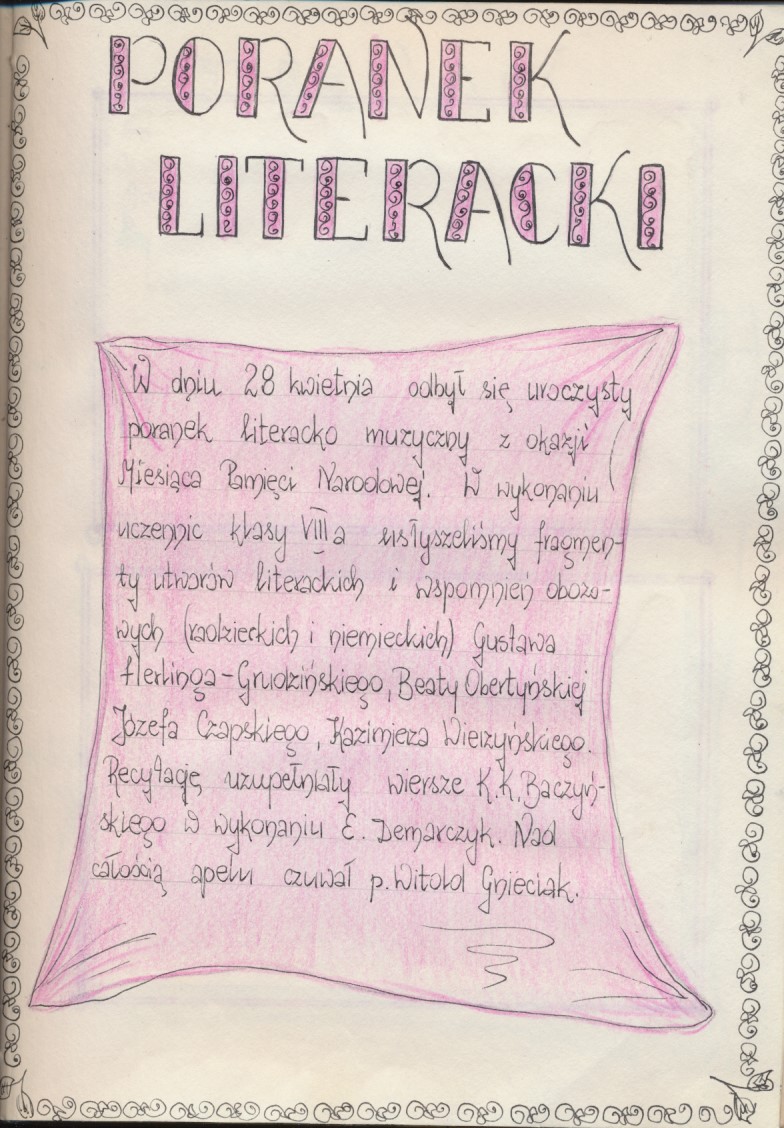 PORANEK
LITERACKI
W dniu 28 kwietnia odbył się uroczysty
poranek literacko muzyczny z okazji
Miesiąca Pamięci Narodowej. W wykonaniu
uczennic klasy VIII a usłyszeliśmy fragmen-
ty utworów literackich i wspomnień obozo-
wych (radzieckich i niemieckich) Gustawa
Herlinga-Grudzińskiego, Beaty Obertyńskiej
Józefa Czapskiego, Kazimierza Wierzyńskiego.
Recytację uzupełniały wiersze K.K. Baczyń-
skiego w wykonaniu E. Demarczyk. Nad
całością apelu czuwał p. Witold Gnieciak.